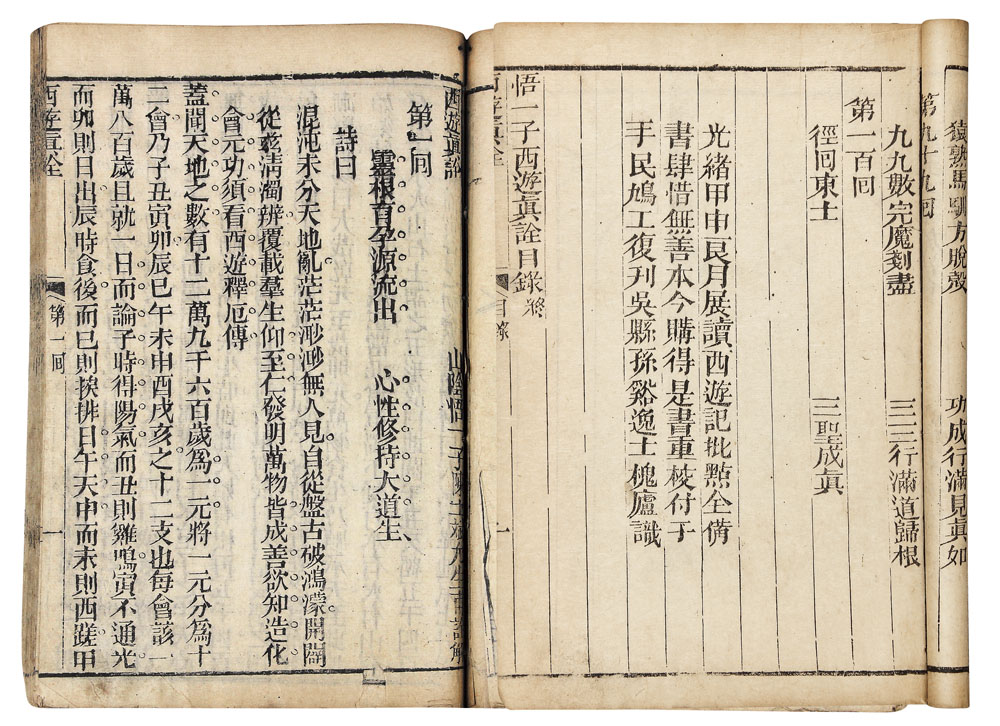 猿熟馬馴方脫殼　功成行滿見眞如
第九十九回
九九數完魔剗盡　三三行滿道歸根
第一百回
徑回東土　三聖成眞
光緒甲申良月展讀西遊記批點全備
書肆惜無善本今購得是書重校付于
手民鳩工復刊吳縣孫谿逸士槐廬識
悟一子西遊眞詮目錄終
目錄　一
西遊眞詮
山陰悟一子陳士斌允生甫詮解
第一回
靈根育孕源流出　心性修持大道生
詩曰
混沌未分天地亂。茫茫渺渺無人見。自從盤古破鴻濛。開闢
從茲清濁辨。覆載羣生仰至仁。發明萬物皆成善。欲知造化
會元功。須看西遊釋厄傳
蓋聞天地之數有十二萬九千六百歲爲一元。將一元分爲十
二會。乃子丑寅卯辰巳午未申酉戌亥之十二支也。每會該一
萬八百歲。且就一日而論。子時得陽氣而丑則雞鳴。寅不通光
而卯則日出。辰時食後而巳則挨排。日午天中而未則西蹉。申
西遊眞詮　第一回　一